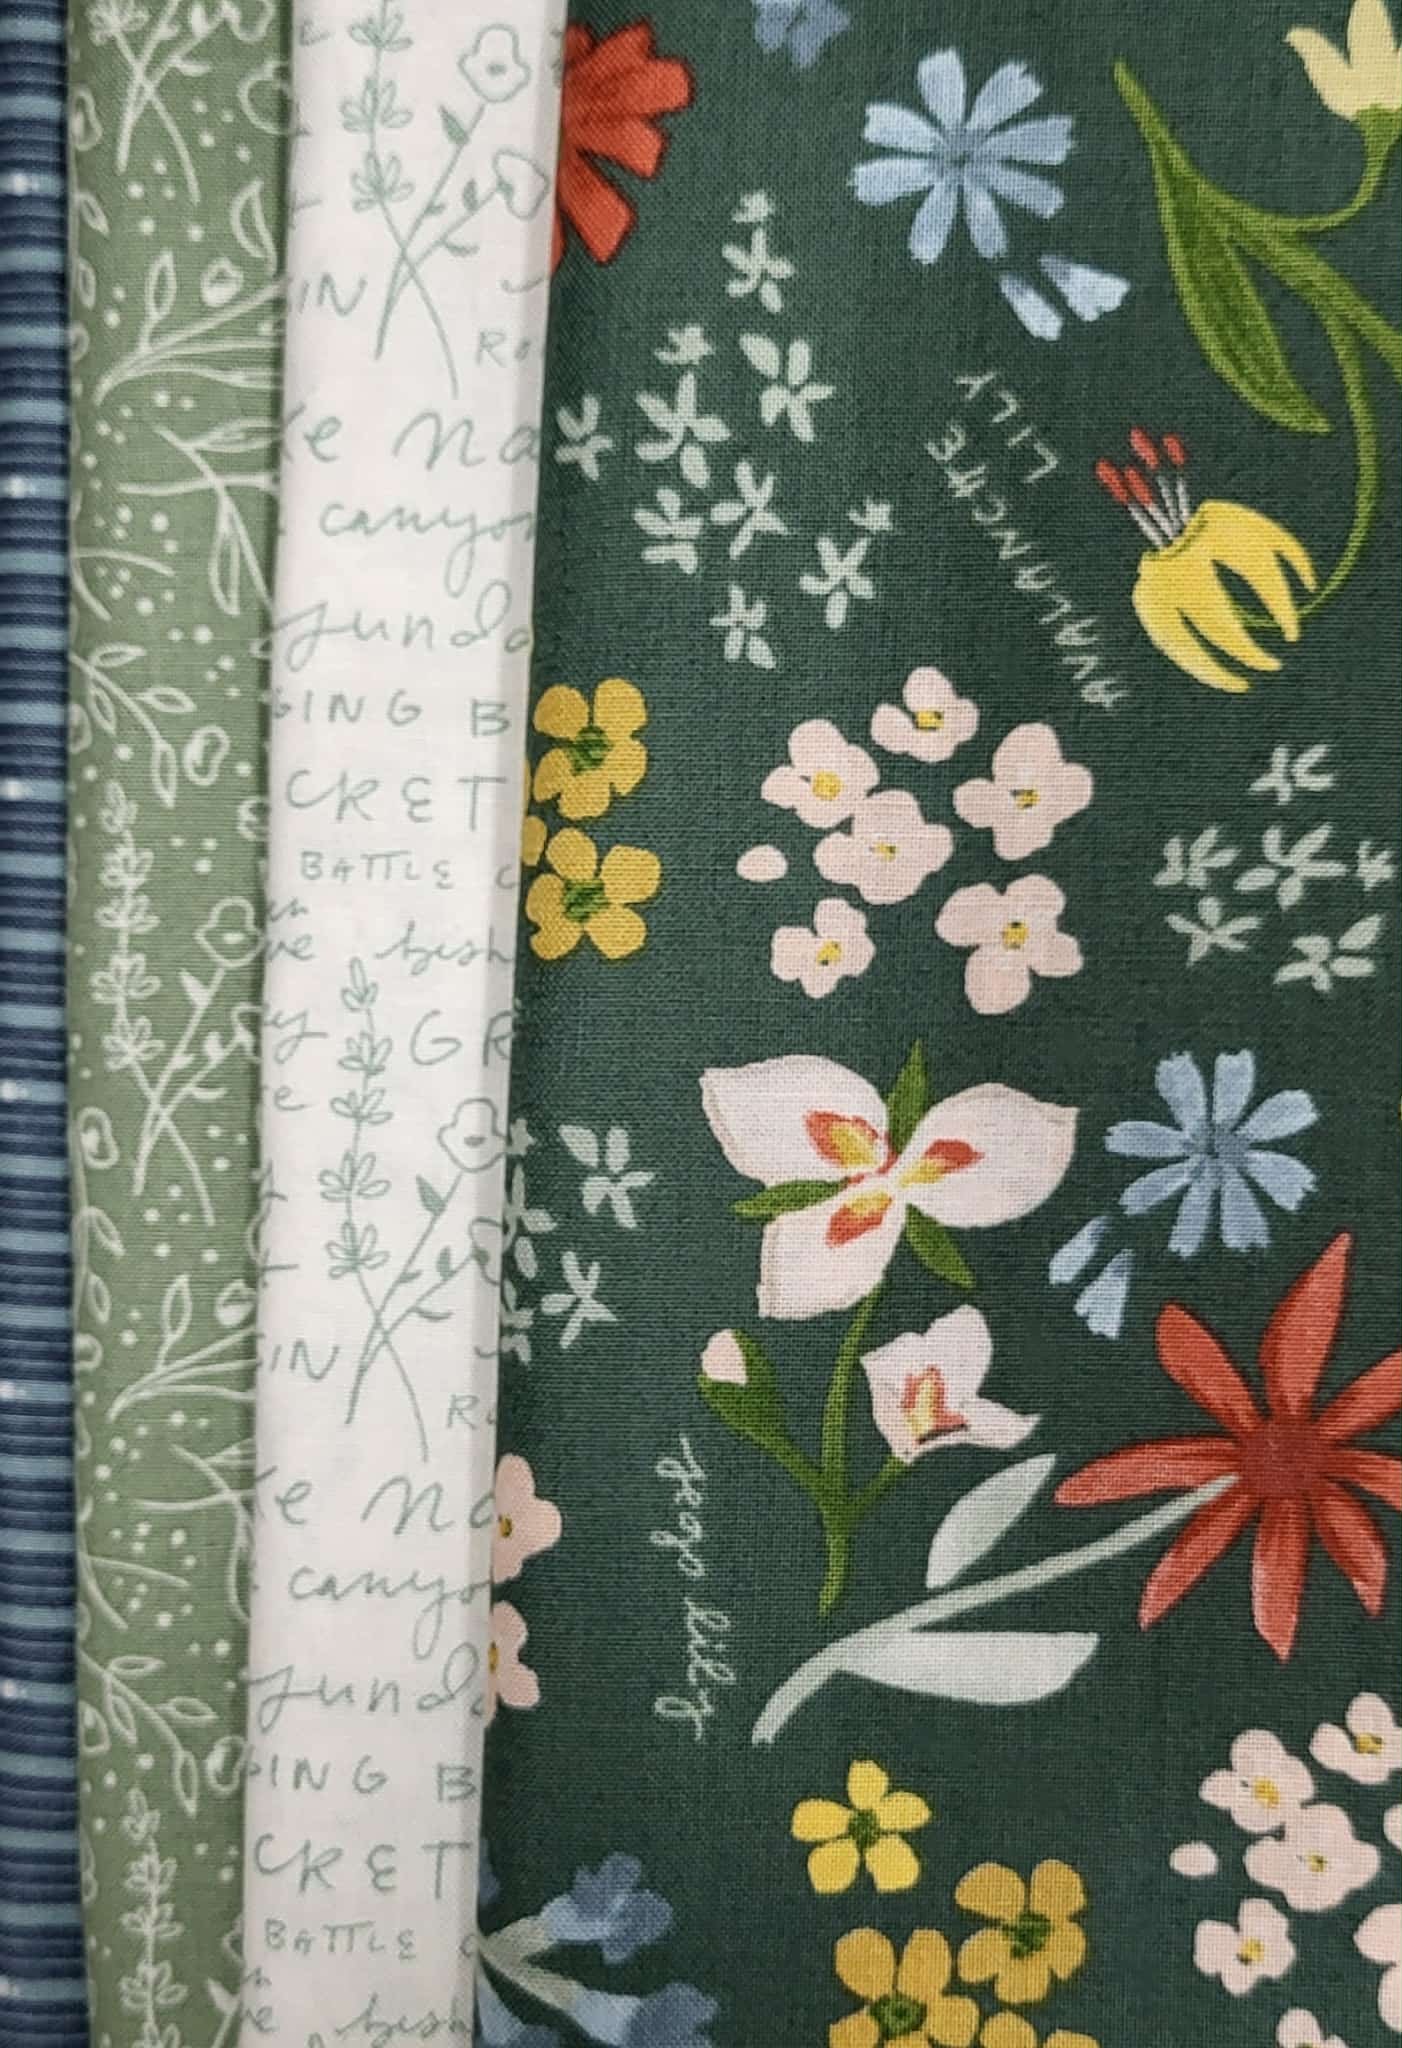 IN
ke na
canyon
sunda
GING B
CKET
BATTLE C
ve bish
GR
IN
ke na
canyo
sunda
GING B
CKET
BATTLE
ve bish
AVALANCHE
LILY
sego lily